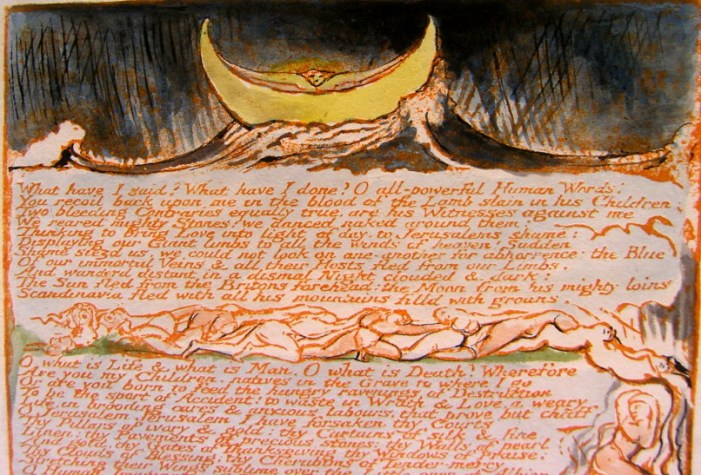 What have I said? What have I done? O all-powerful Human Words!
You recoil back upon me in the blood of the Lamb slain in his Children
Two bleeding Contraries equally true, are his Witnesses against me
We reared mighty Stones: we danced naked around them:
Thinking to bring Love into light of day, to Jerusalems shame:
Displaying our Giant limbs to all the winds of heaven! Sudden
Shame siezd us, we could not look on one-another for abhorrence: the Blue
Of our immortal Veins & all their Hosts fled from our Limbs,
And wanderd distant in a dismal Night clouded & dark:
The Sun fled from the Britons forehead: the Moon from his mighty loins:
Scandinavia fled with all his mountains filld with groans.
O what is Life & what is Man. O what is Death? Wherefore
Are you my Children, natives in the Grave to where I go
Or are you born to feed the hungry ravenings of Destruction
To be the sport of Accident! to waste in Wrath & Love, a weary
Life, in brooding cares & anxious labours, that prove but chaff.
O Jerusalem Jerusalem I have forsaken thy Courts
Thy Pillars of ivory & gold: thy Curtains of silk & fine
Linen: thy Pavements of precious stones: thy Walls of pearl
And gold, thy Gates of Thanksgiving thy Windows of Praise:
Thy Clouds of Blessing; thy Cherubims of Tender-mercy
Stretching their Wings sublime over the